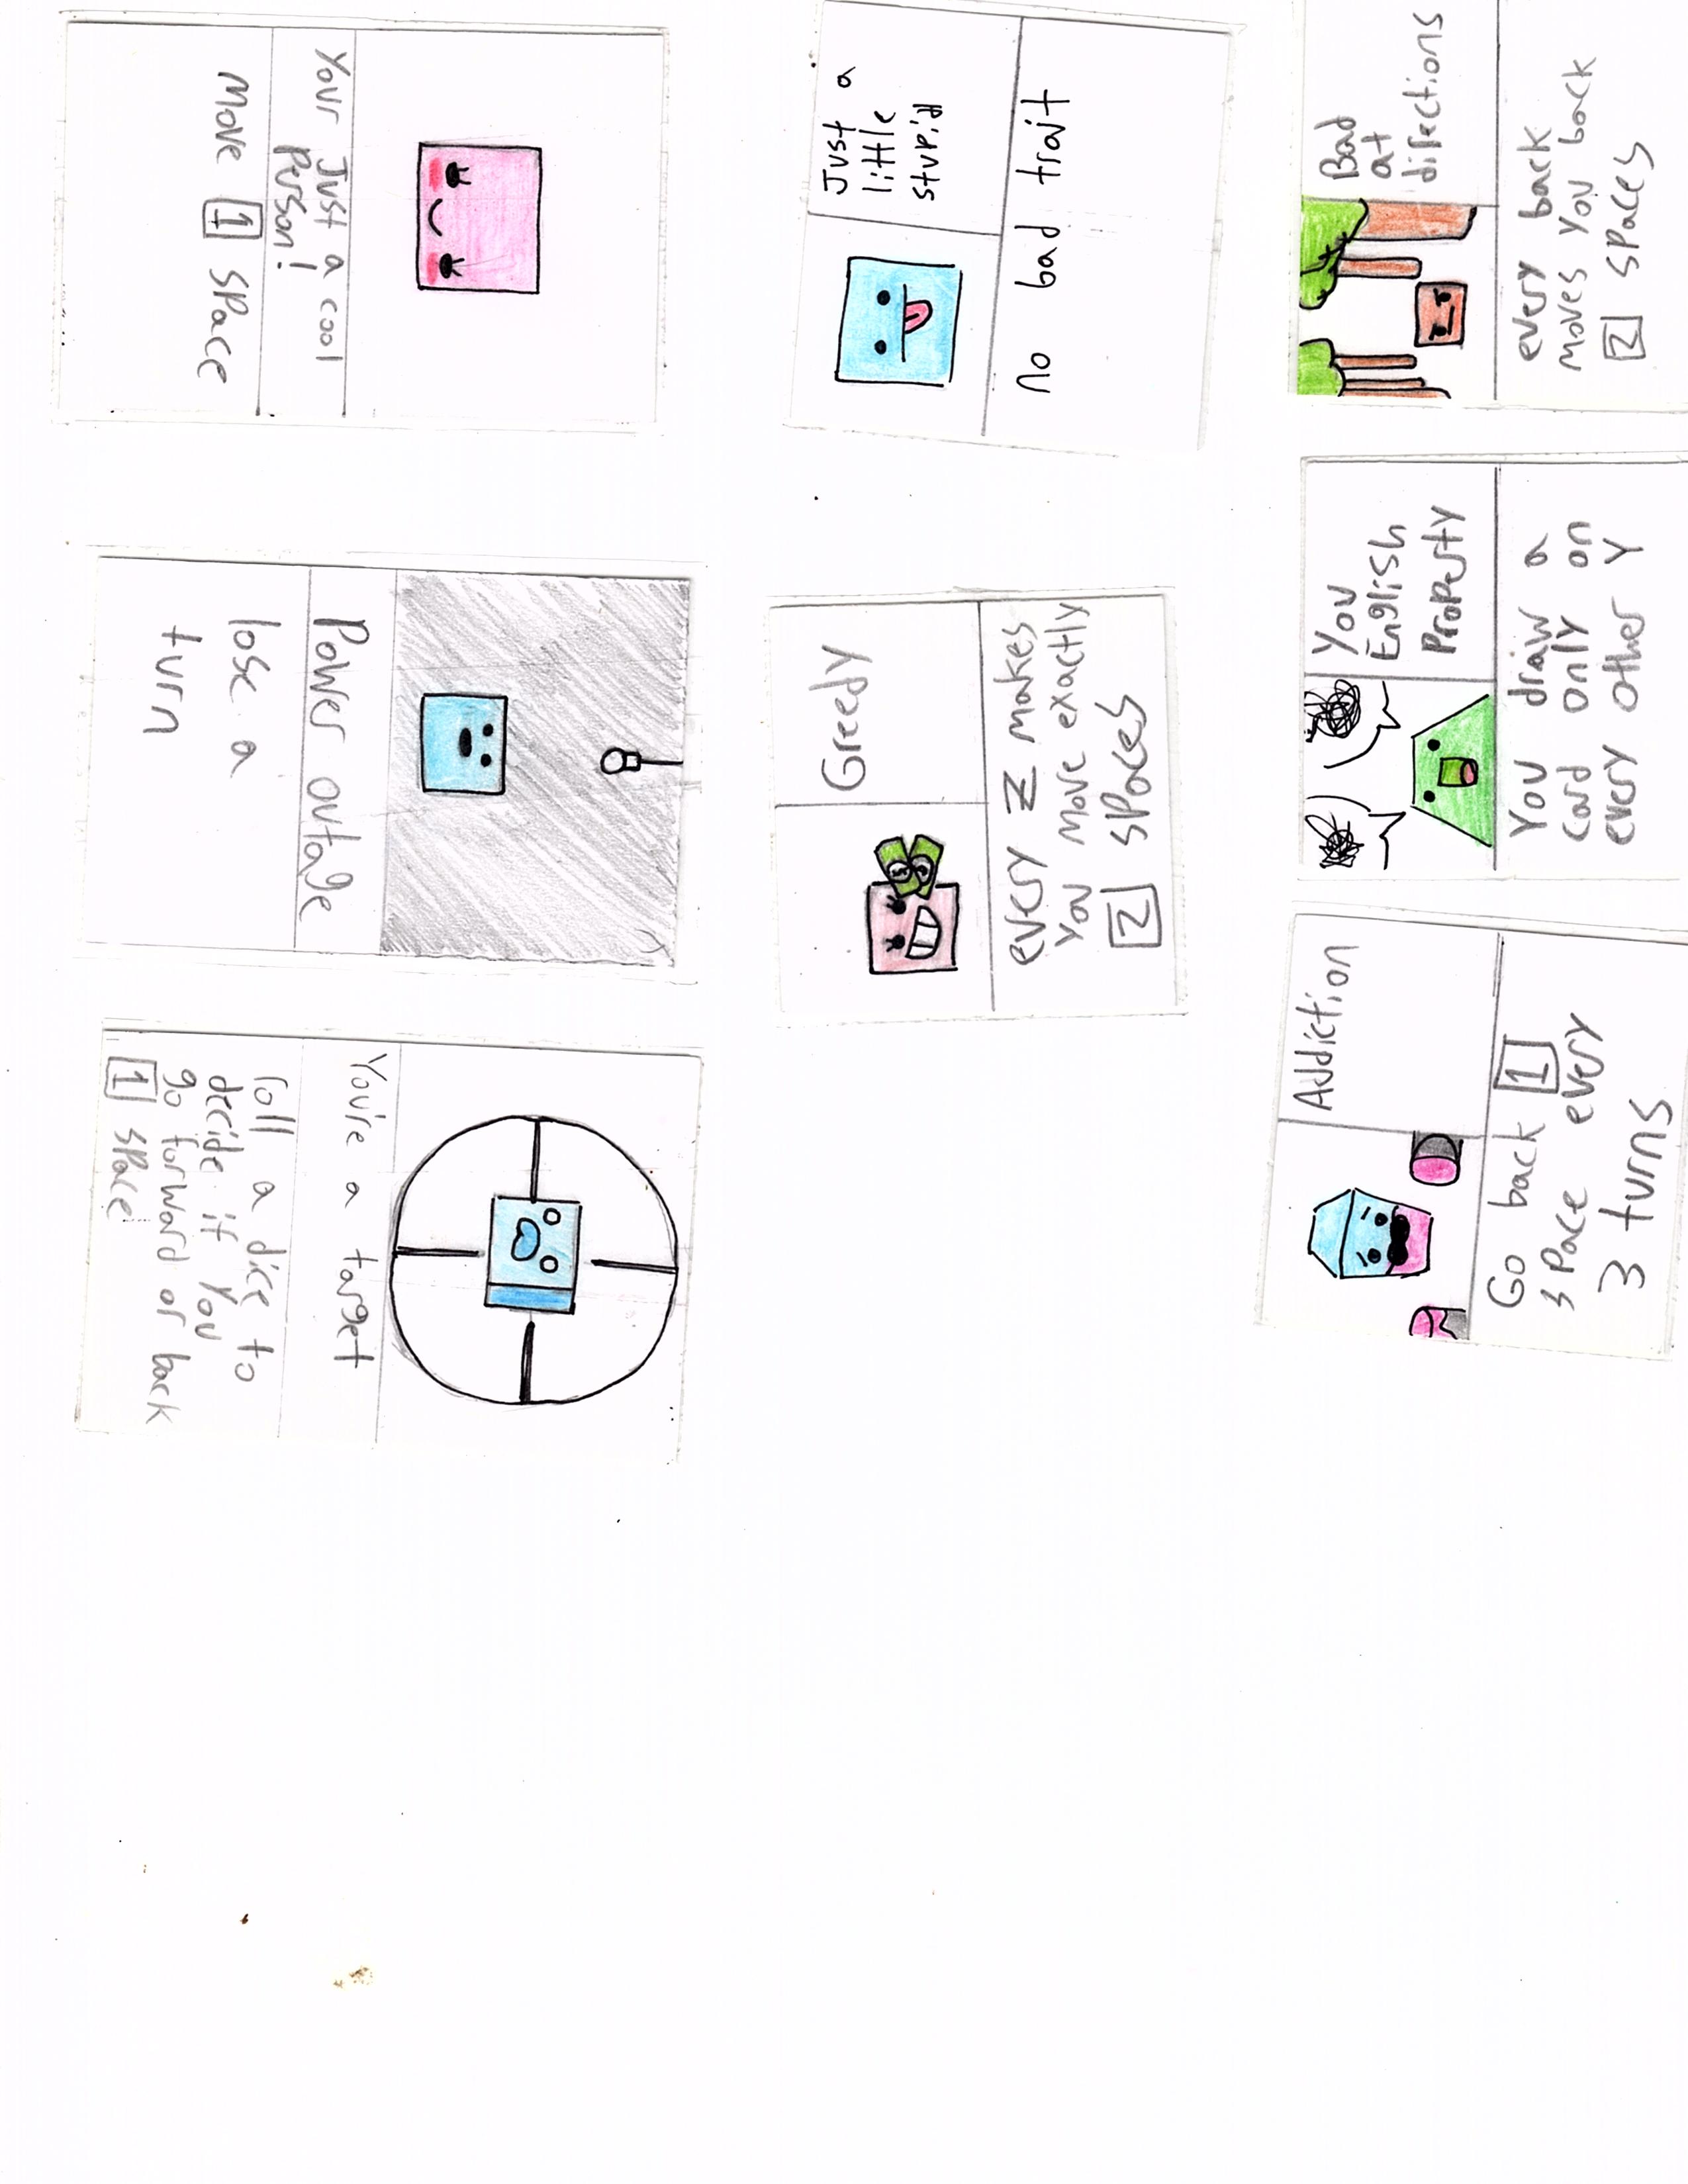 Your Just a cool
Person!
Move 1 space
Power outage
lose a
turn
You're a target
roll a dice to
decide if you
go forward or back
1 space
Just a
little
stupid
No bad trait
Greedy
every Z makes
You move exactly
2 spaces
Bad
at
directions
every back
moves you back
2 spaces
You
English
Property
You draw a
card only on
every other Y
Addiction
Go back 1
space every
3 turns